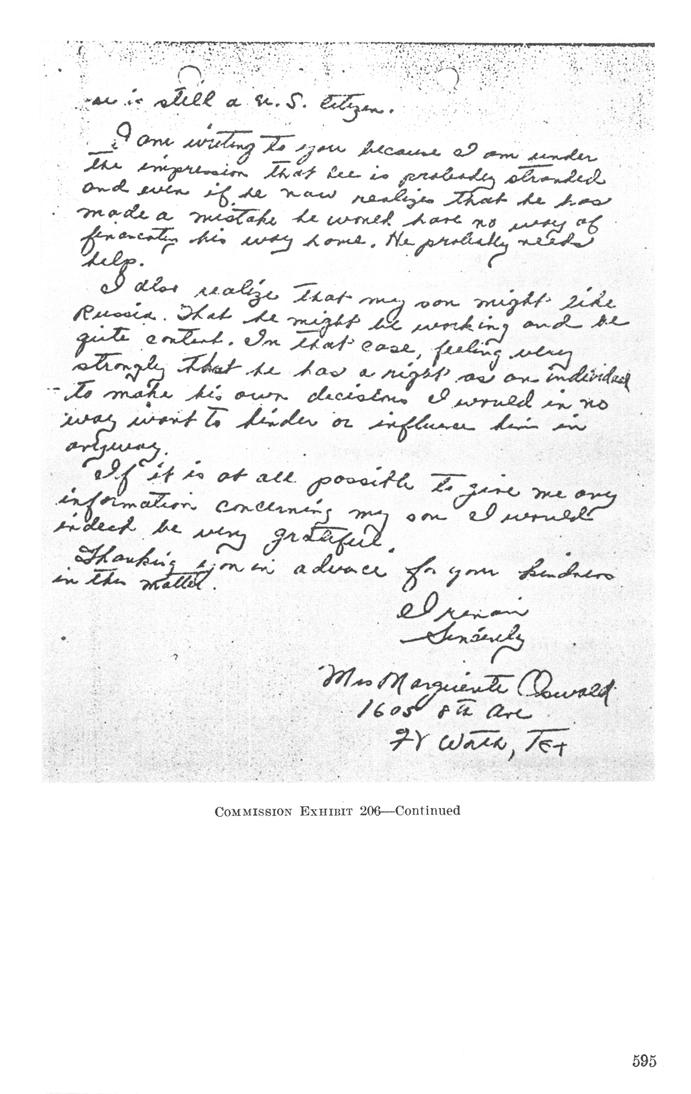 is still a U.S. Citizen.
I am writing to you because I am under
the impression that Lee is probably stranded
and even if he now realizes that he has
made a mistake he would have no way of
financing his way home. He probably needs
help.
I also realize that my son might like
Russia. That he might be working and be
quite content. In that case, feeling very
strongly that he has a right as an individual
to make his own decisions I would in no
way want to hinder or influence him in
anyway.
If it is at all possible to give me any
information concerning my son I would
indeed be very grateful.
Thanking you in advance for your kindness
in this matter.
I remain
Sincerely
Mrs Marguerite Oswald
1605 8th Ave
Ft Worth, Tex
COMMISSION EXHIBIT 206—Continued
595